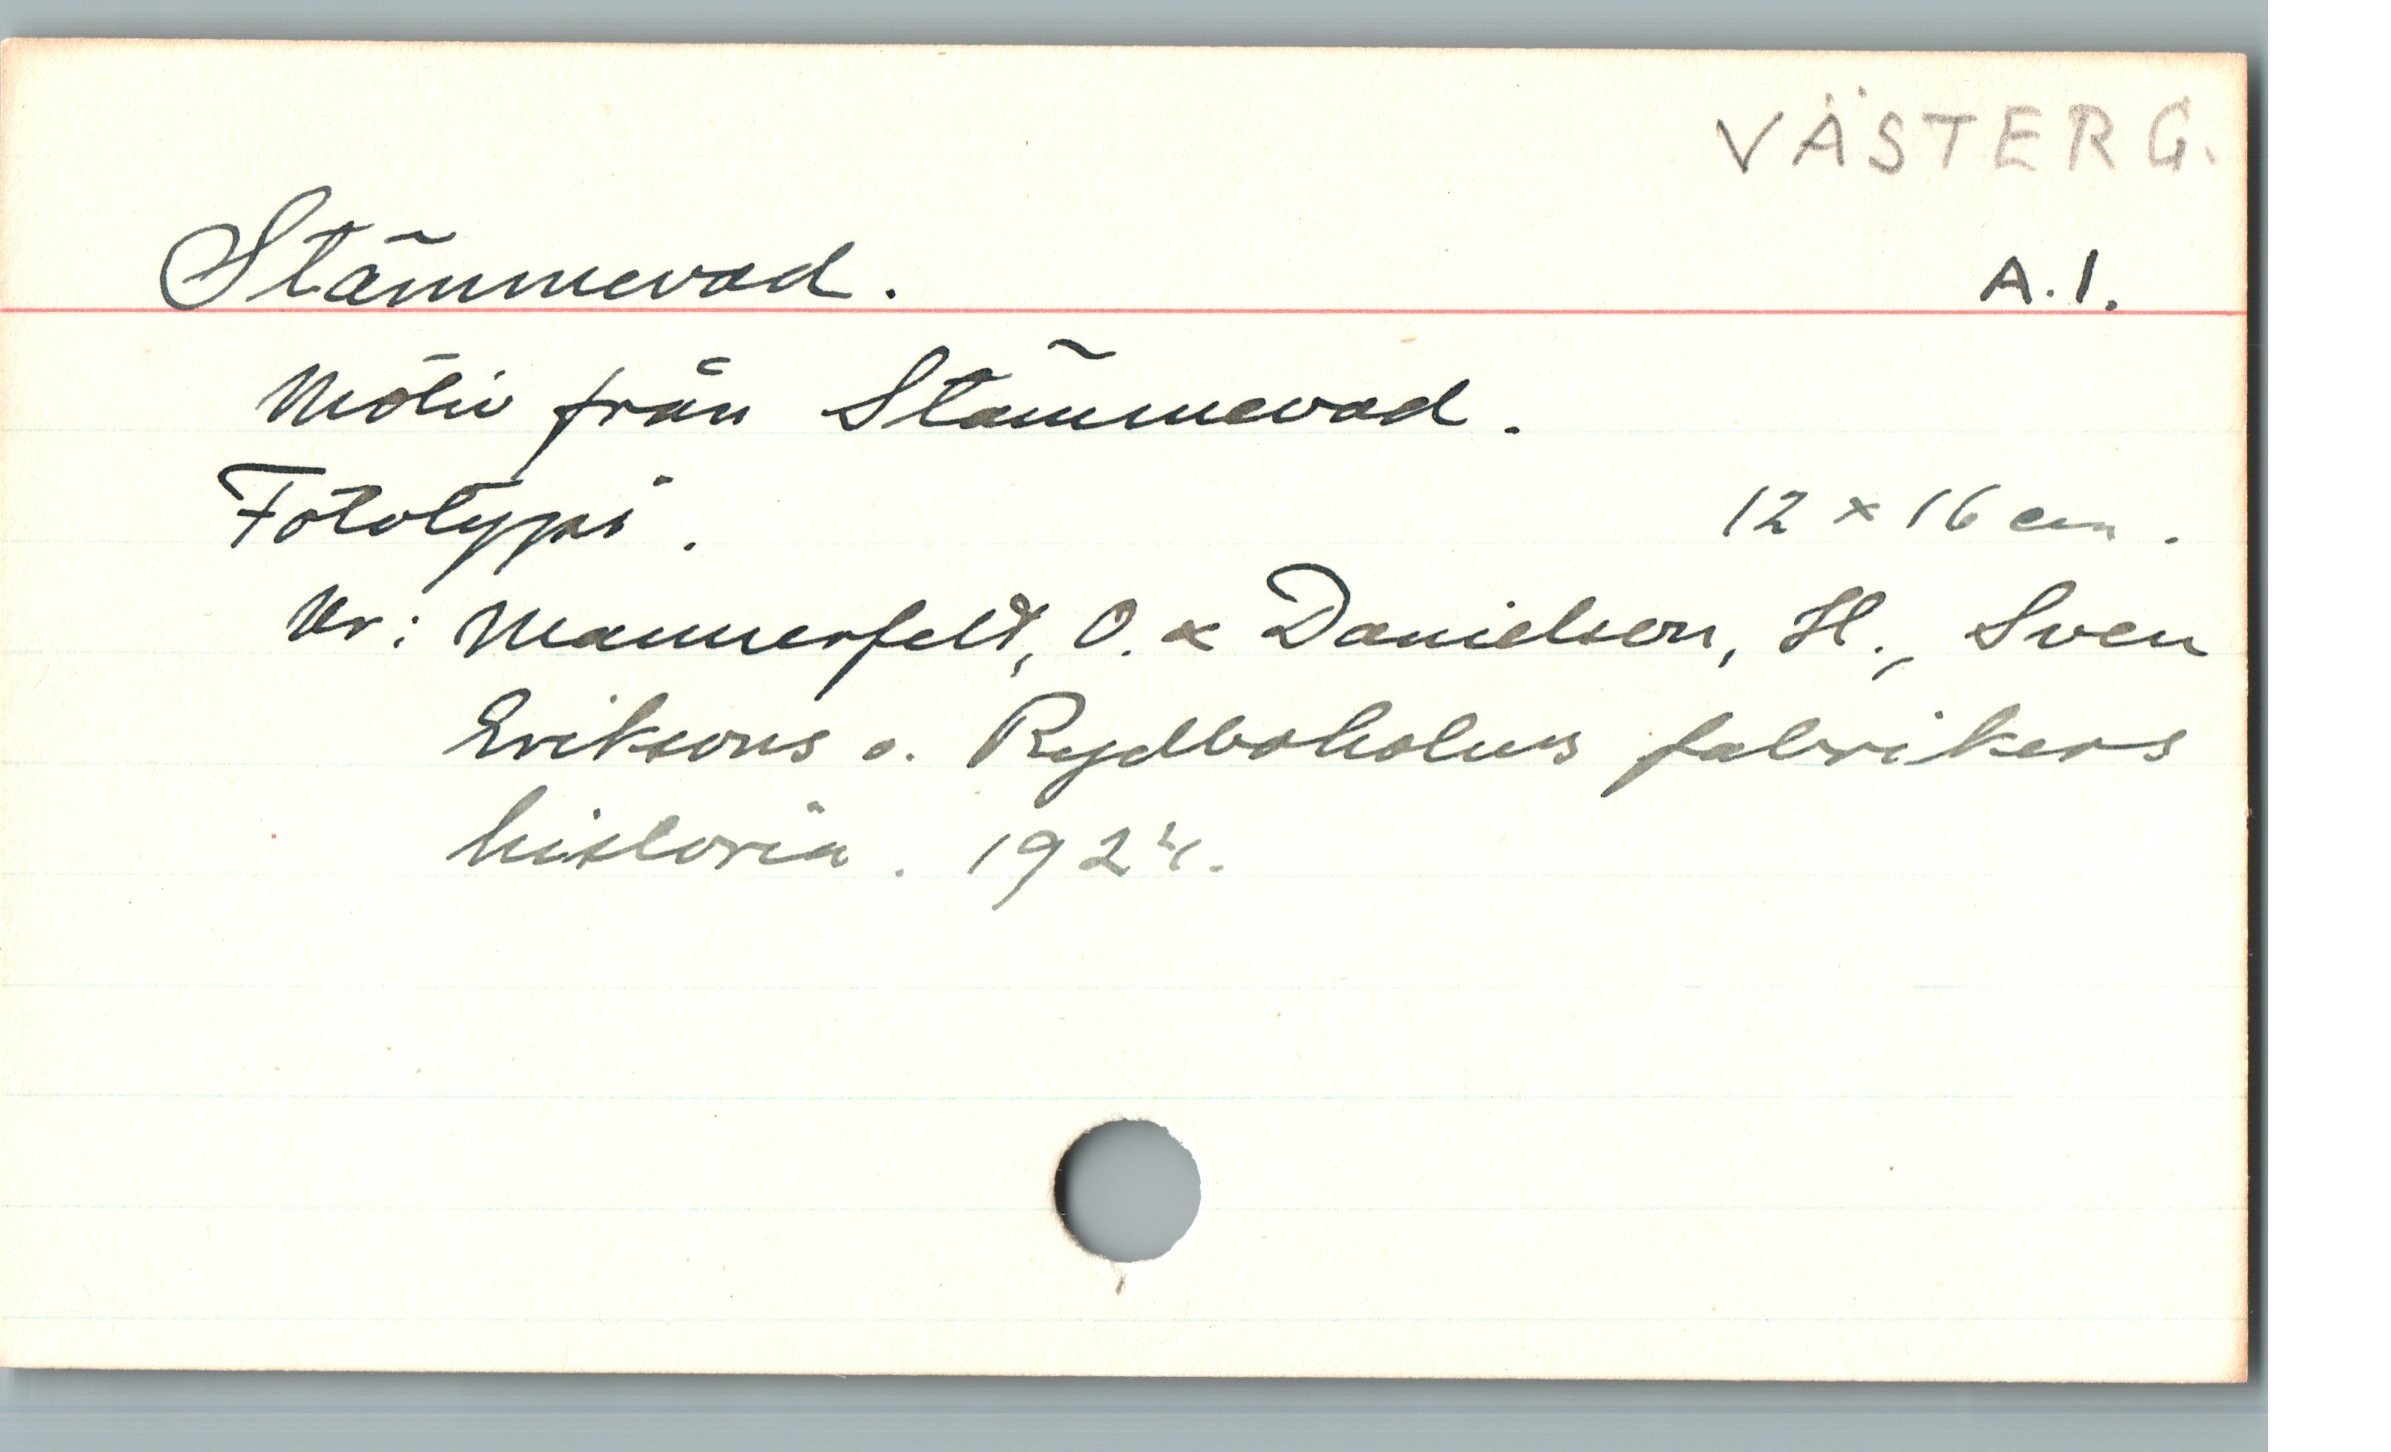 VÄSTERG.
Stämmevad. A.1.
Motiv från Stämmevad.
Fototypi. 12 x 16 cm.
Ur: Mannerfelt, O. & Danielson, H., Sven
Eriksons o. Rydboholms fabrikers
historia. 1924.